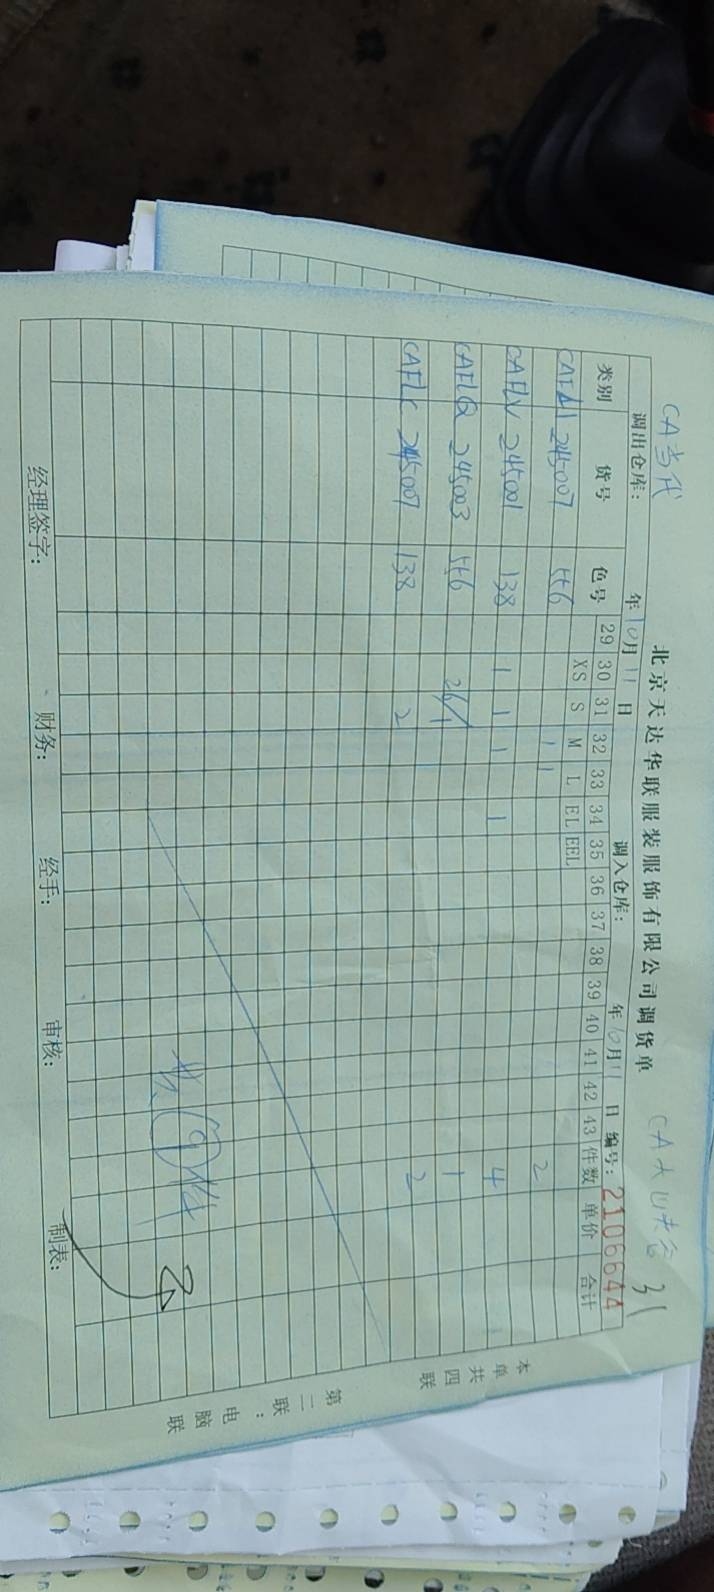 北京天达华联服装服饰有限公司调货单
CA当代
CA大山大谷 31
调出仓库: 年10月11日 调入仓库: 年10月11日 编号: 2106644
类别 货号 色号 29 30 31 32 33 34 35 36 37 38 39 40 41 42 43 件数 单价 合计
XS S M L EL EEL
245007 556 1 1 2
CAFLV 245001 138 1 1 1 1 4
CAFLQ 245003 556 26/1 1
CAFLC 245007 138 2 2
共⑨件
本单共四联
第二联:电脑联
经理签字: 财务: 经手: 审核: 制表: